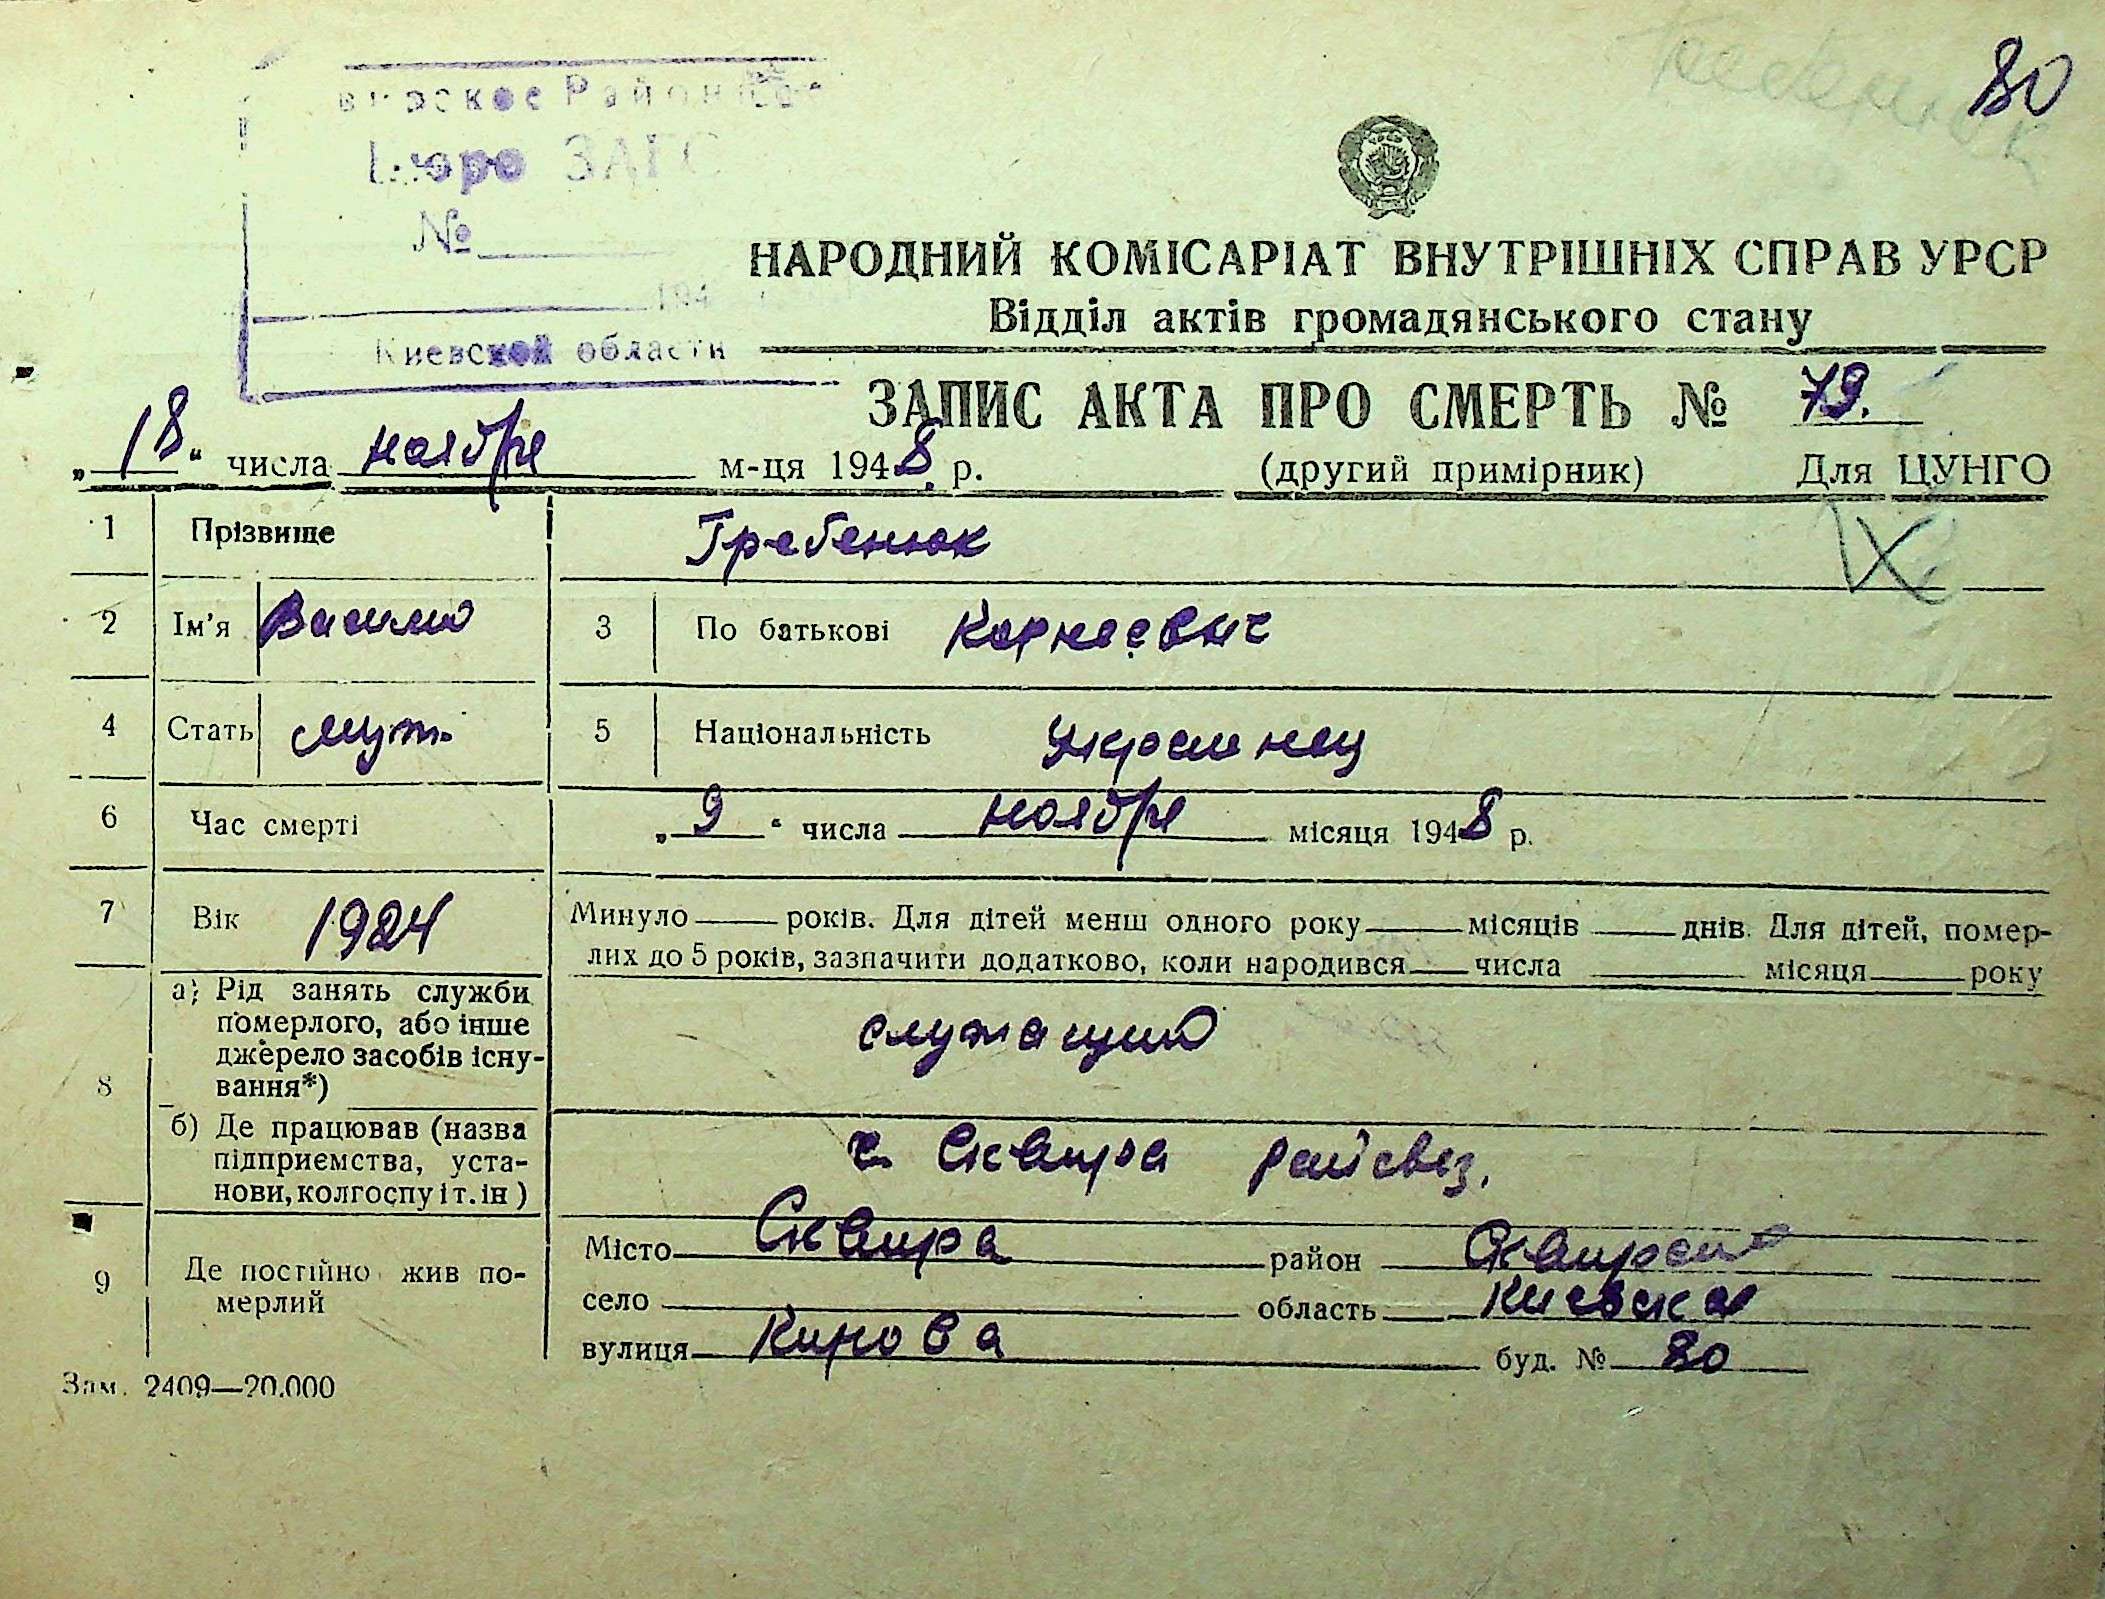 80
Гребенюк
Районное
Бюро ЗАГС
№
194
Киевской области
НАРОДНИЙ КОМІСАРІАТ ВНУТРІШНІХ СПРАВ УРСР
Відділ актів громадянського стану
ЗАПИС АКТА ПРО СМЕРТЬ № 79.
„18“ числа ноября м-ця 1948 р. (другий примірник) Для ЦУНГО
1 Прізвище Гребенюк
2 Ім'я Василий 3 По батькові Корнеевич
4 Стать муж. 5 Національність украинец
6 Час смерті „9“ числа ноября місяця 1948 р.
7 Вік 1924 Минуло — років. Для дітей менш одного року — місяців — днів. Для дітей, помер-
лих до 5 років, зазначити додатково, коли народився — числа — місяця — року
8 а) Рід занять служби
померлого, або інше
джерело засобів існу-
вання*)
служащий
б) Де працював (назва
підприємства, уста-
нови, колгоспу і т. ін)
г. Сквира райсвяз.
9 Де постійно жив по-
мерлий
Місто Сквира район Сквирский
село область Киевская
вулиця Кирова буд. № 80
Зам. 2409—20.000